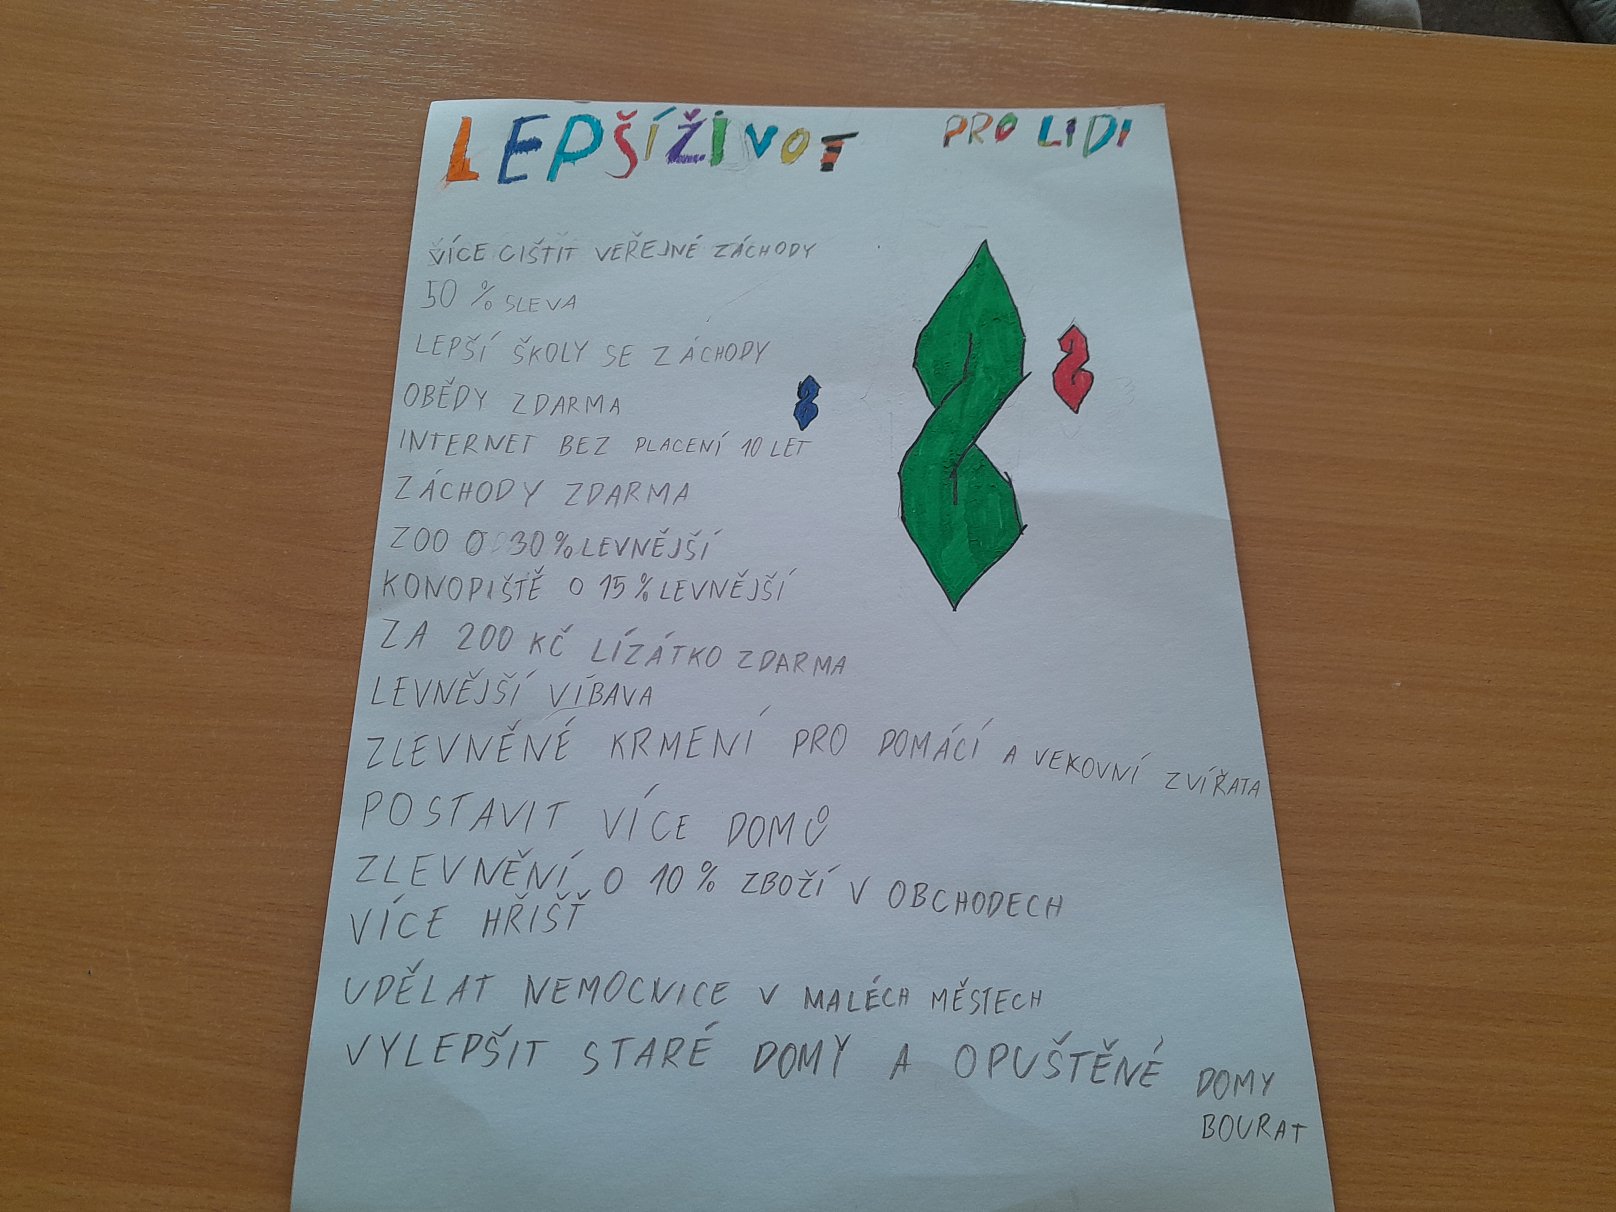 LEPŠÍ ŽIVOT PRO LIDI
VÍCE CIŠTIT VEŘEJNÉ ZÁCHODY
50 % SLEVA
LEPŠÍ ŠKOLY SE ZÁCHODY
OBĚDY ZDARMA
INTERNET BEZ PLACENÍ 10 LET
ZÁCHODY ZDARMA
ZOO O 30% LEVNĚJŠÍ
KONOPIŠTĚ O 15% LEVNĚJŠÍ
ZA 200 KČ LÍZÁTKO ZDARMA
LEVNĚJŠÍ VÍBAVA
ZLEVNĚNÉ KRMENÍ PRO DOMÁCÍ A VEKOVNÍ ZVÍŘATA
POSTAVIT VÍCE DOMŮ
ZLEVNĚNÍ O 10% ZBOŽÍ V OBCHODECH
VÍCE HŘIŠŤ
UDĚLAT NEMOCNICE V MALÉCH MĚSTECH
VYLEPŠIT STARÉ DOMY A OPUŠTĚNÉ DOMY
BOURAT